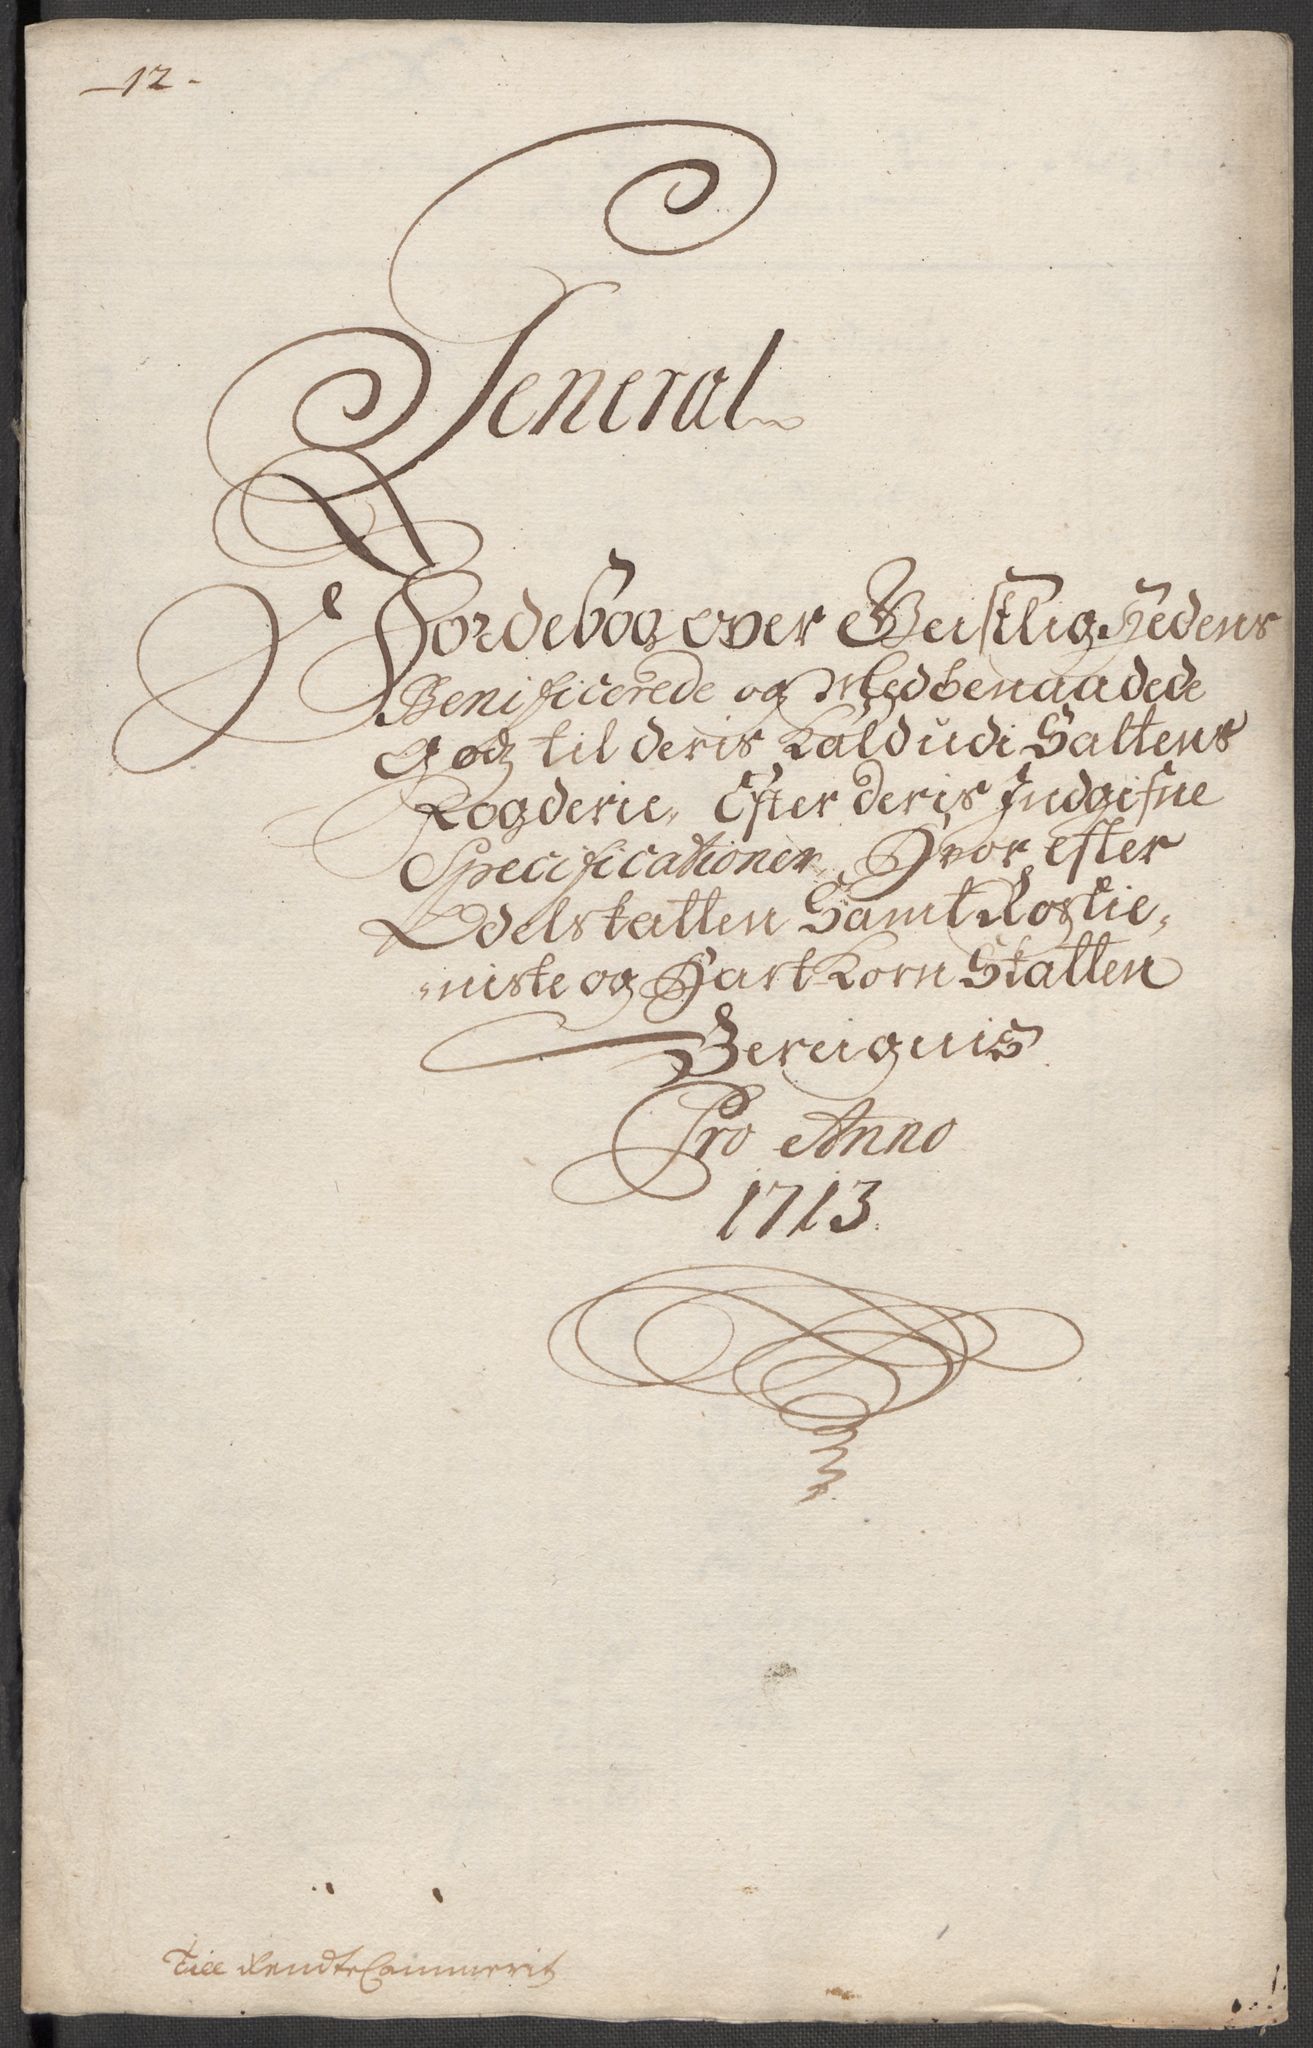 12
General
Jordebog over Geistlighedens
Benificerede og Medbenaadede
godz til deris Kald udi Saltens
Fogderie, Efter deris Indgifne
Specificationer, Hvor efter
Odelskatten Samt Rostie,
niste og Hart Korn Skatten
Bereignis
Pro Anno
1713.
Till RendteCammerit
1.